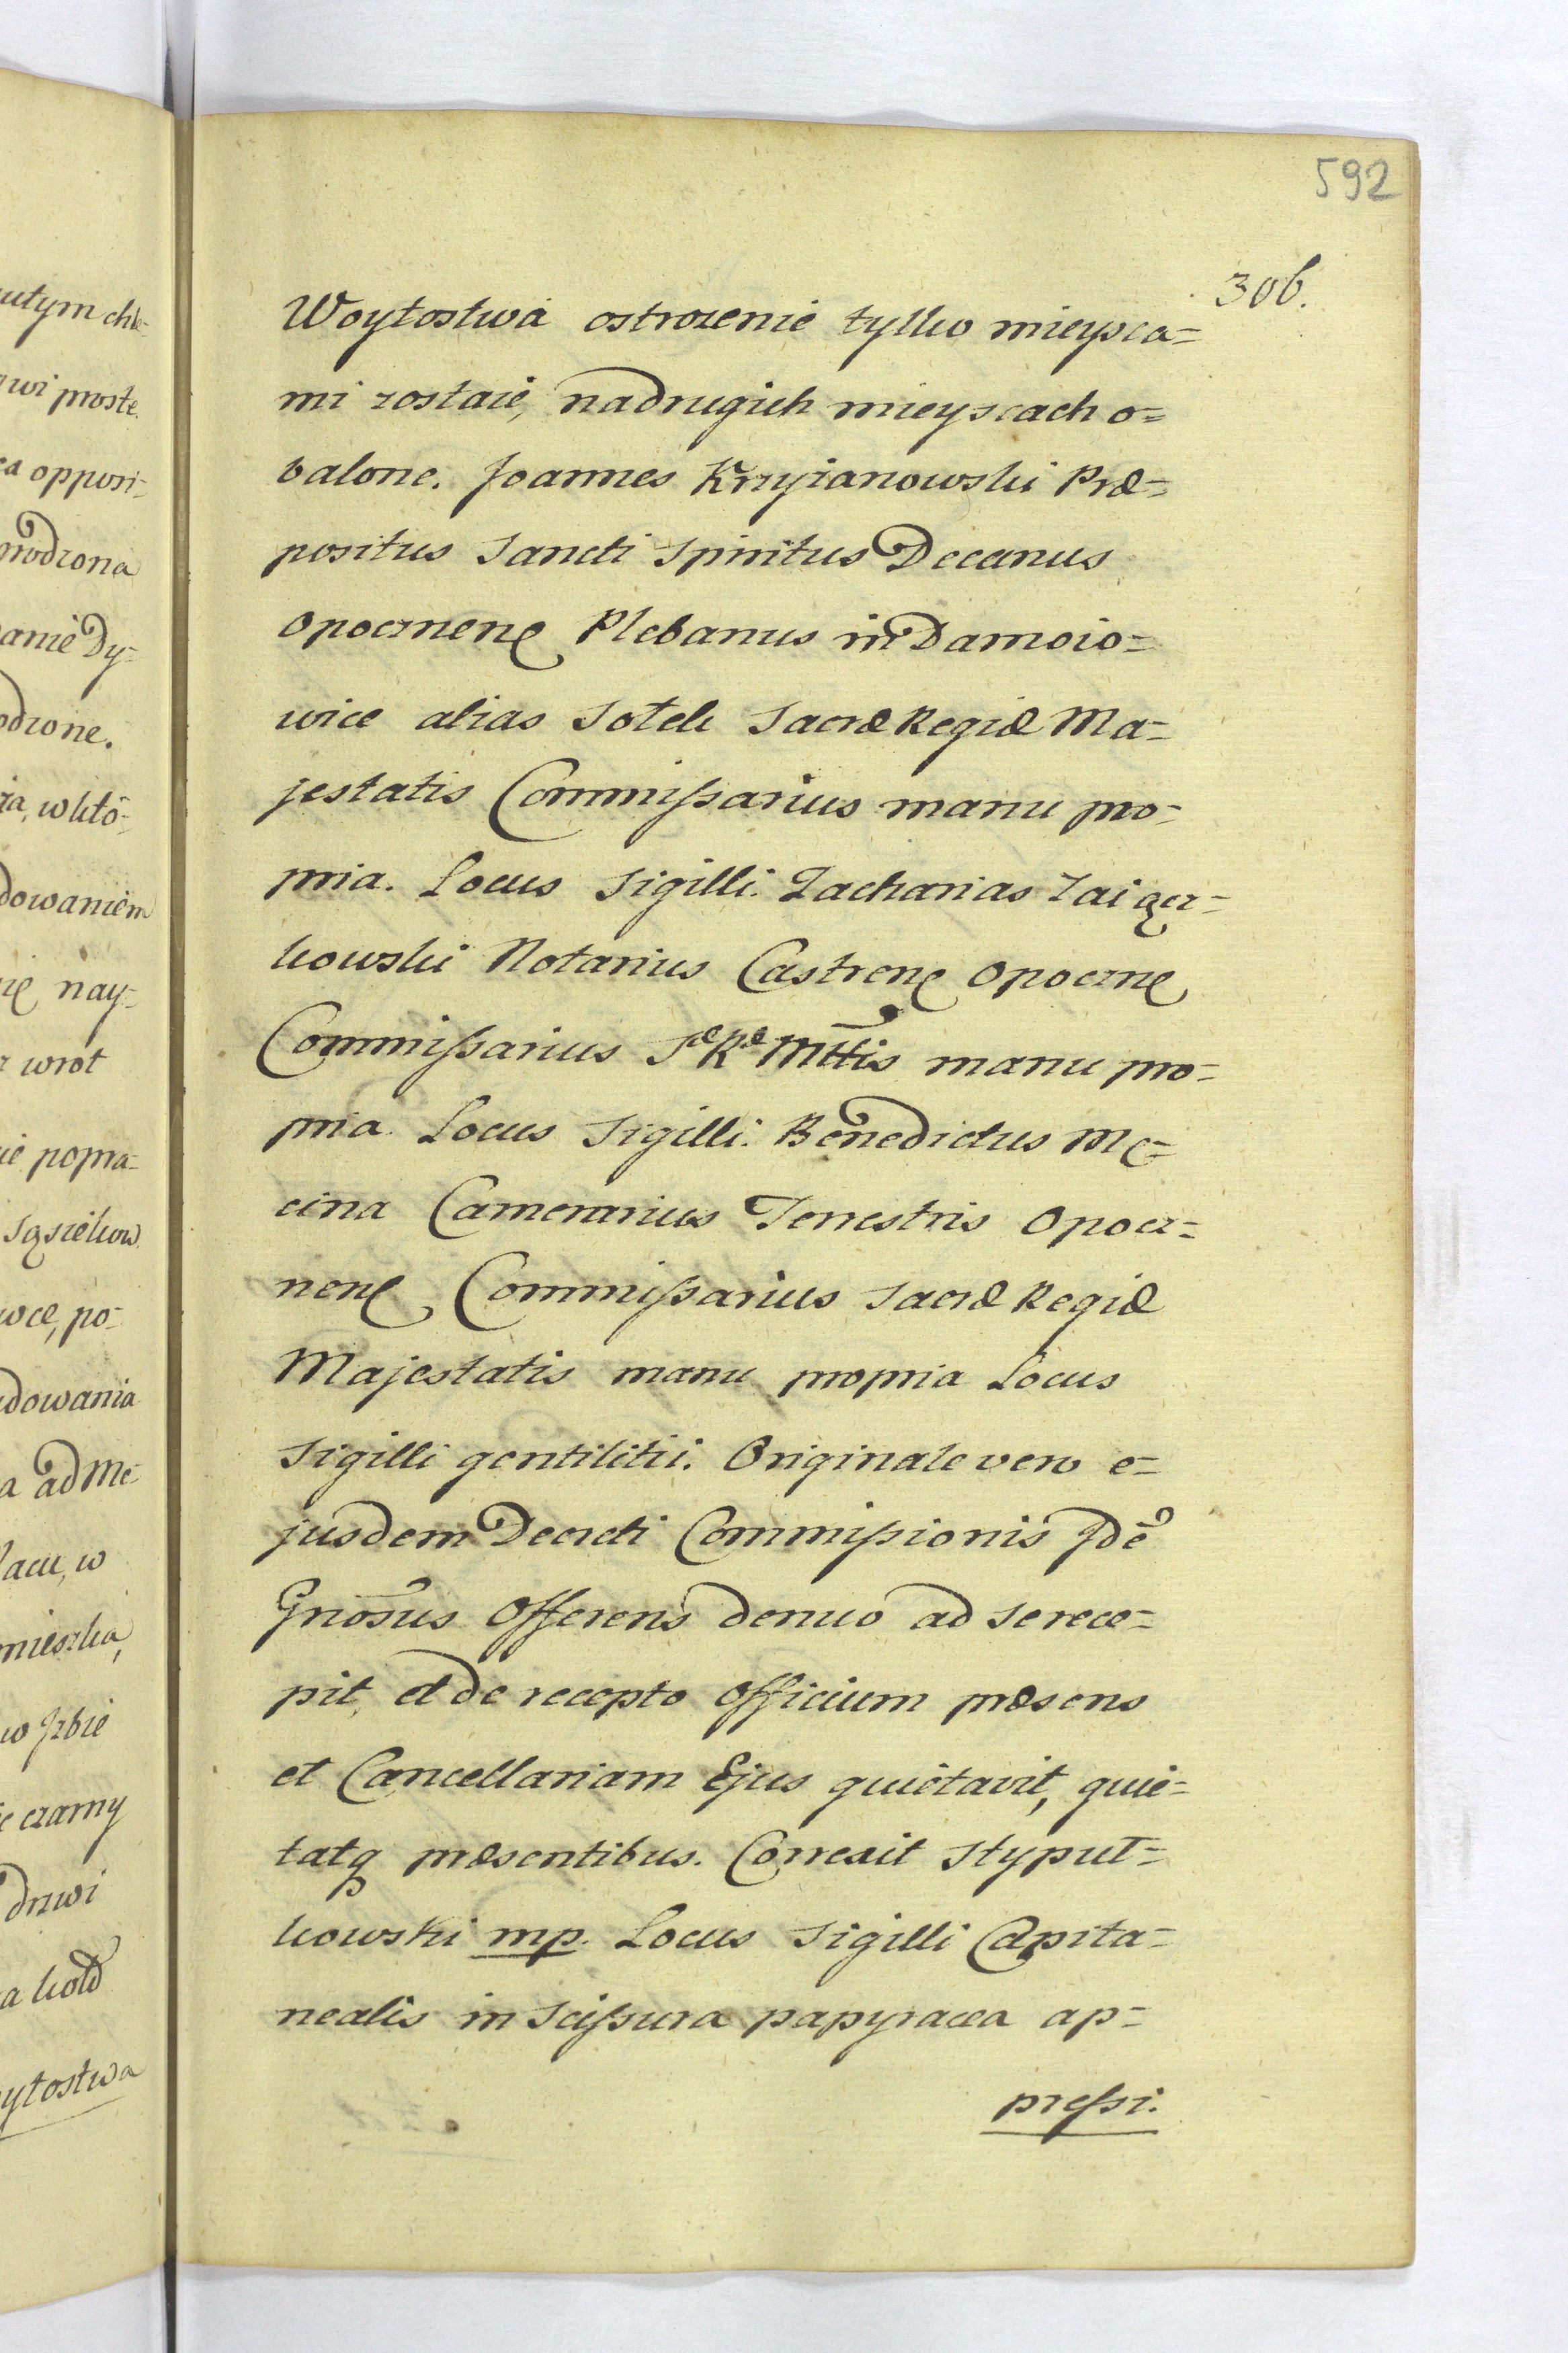 592
306.
Woytostwa ostrozenie tylko mieysca=
mi zostaie, nadrugich mieyscach o=
balone. Joannes Krzyżanowski Præ=
positus Sancti Spiritus Decanus
Opocznen Plebanus in Damoio=
wice alias Sołek Sacræ Regiæ Ma=
jestatis Commissarius manu pro=
pria. Locus Sigilli. Zacharias Zaiącz=
kowski Notarius Castren Opoczn
Commissarius Sæ Ræ Mttis manu pro=
pria Locus Sigilli. Benedictus Mę=
cina Camerarius Terrestris Opocz=
nen Commissarius Sacræ Regiæ
Majestatis manu propria Locus
Sigilli gentilitii. Originale vero e=
jusdem Decreti Commissionis Jdē
Gnosus Offerens denuo ad se rece=
pit, et de recepto Officium præsens
et Cancellariam Ejus quietavit, quie=
tatq præsentibus. Correxit Stypuł=
kowski mp. Locus Sigilli Capita=
nealis in Scissura papyracea ap=
pressi.
utym chle=
wi proste.
ca opposi=
grodzona
anie Dy=
odzone.
ia, w któ=
dowaniem
nay=
wrot
ie popra=
Sąsiekow
woce, po=
dowania
a ad Me=
lacu, w
mieszka,
w Jzbie
czarny
drzwi
a kołd
ytostwa